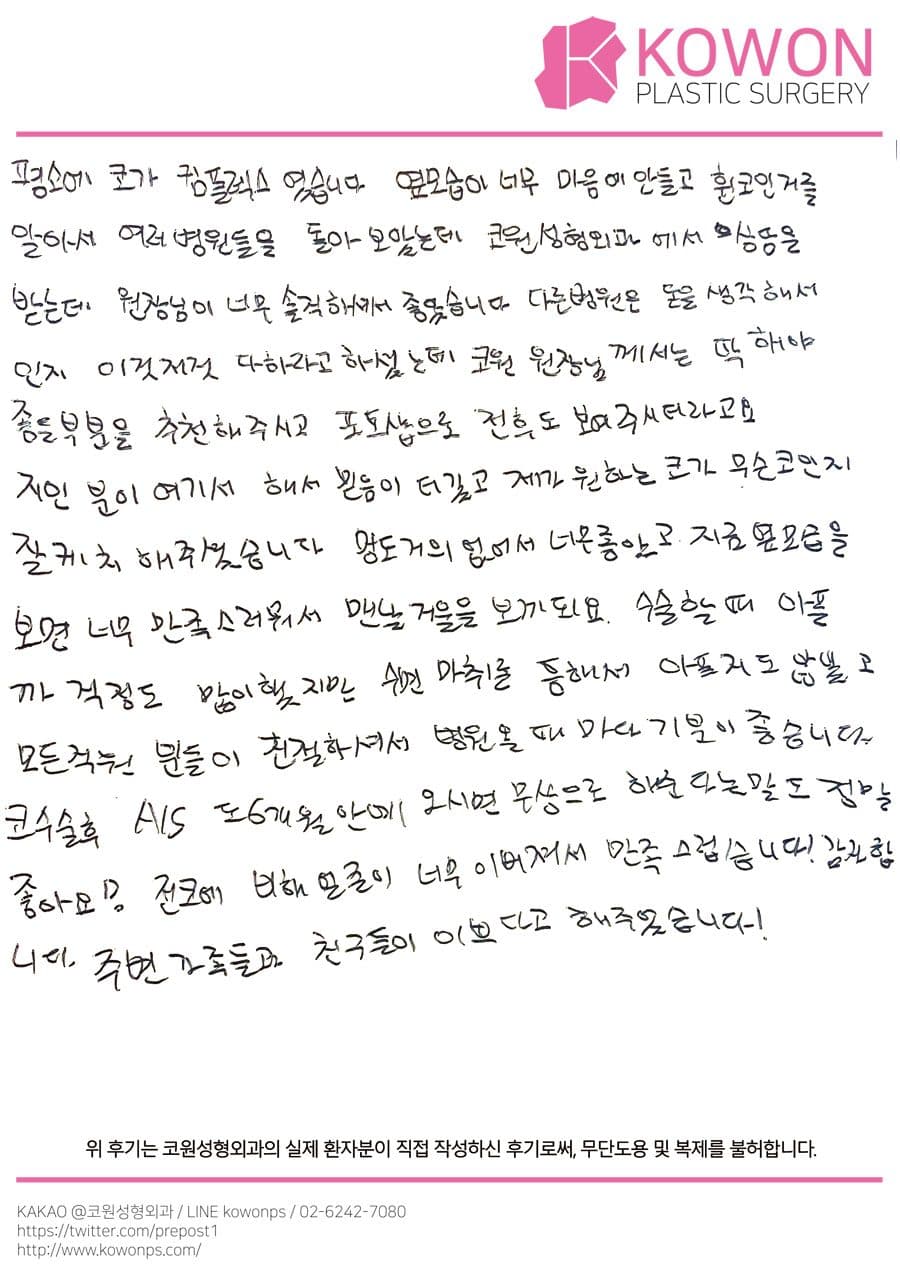 KOWON
PLASTIC SURGERY
평소에 코가 컴플렉스 였습니다 옆모습이 너무 마음에 안들고 휜코인거를
알아서 여러병원들을 돌아 보았는데 코원성형외과 에서 상담을
받는데 원장님이 너무 솔직해서 좋았습니다 다른병원은 돈을 생각해서
인지 이것저것 다하라고 하셨는데 코원 원장님께서는 딱 해야
좋을부분을 추천해주시고 포토샵으로 전후도 보여주시더라고요
지인 분이 여기서 해서 믿음이 더갔고 제가 원하는 코가 무슨코인지
잘캐치 해주셨습니다 멍도거의 없어서 너무좋았고 지금 옆모습을
보면 너무 만족스러워서 맨날 거울을 보게되요. 수술할때 아플
까 걱정도 많이했지만 수면 마취를 통해서 아프지도 않았고
모든직원 분들이 친절하셔서 병원올때 마다 기분이 좋습니다.
코수술후 A/S 도 6개월안에 오시면 무상으로 해준다는말도 정말
좋아요 전코에 비해 얼굴이 너무 이뻐져서 만족 스럽습니다! 감사합
니다. 주변가족들과 친구들이 이쁘다고 해주었습니다!
위 후기는 코원성형외과의 실제 환자분이 직접 작성하신 후기로써, 무단도용 및 복제를 불허합니다.
KAKAO @코원성형외과 / LINE kowonps / 02-6242-7080
https://twitter.com/prepost1
http://www.kowonps.com/